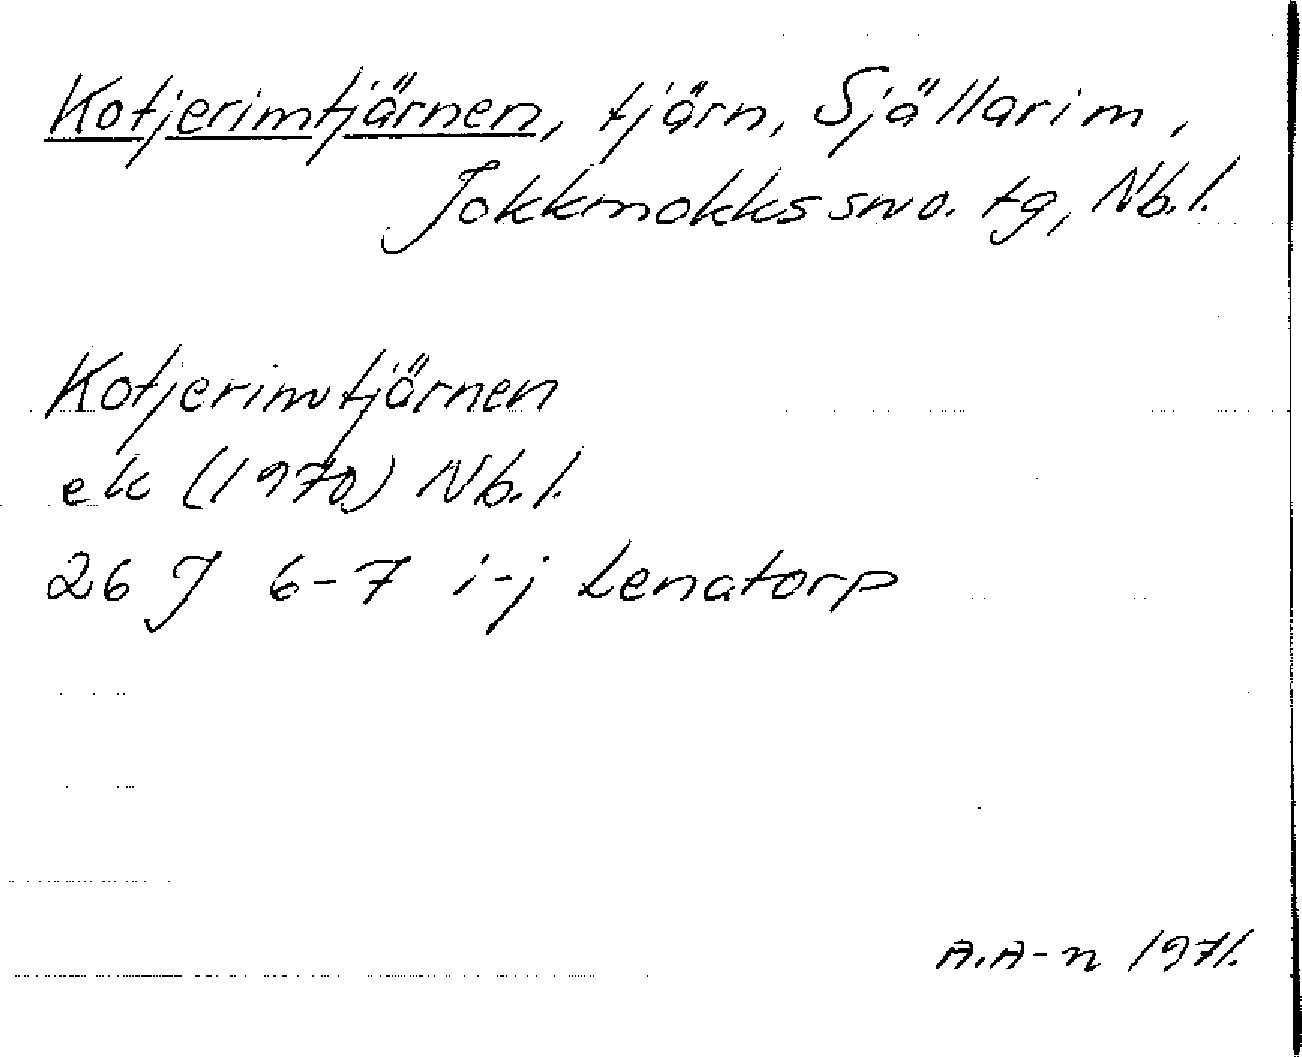 Kotjerimtjärnen, tjärn, Själlarim,
Jokkmokks sn o. tg, Nb.l.
Kotjerimtjärnen
ek (1970) Nb.l.
26 J 6-7 i-j Lenatorp
A.A-n 1971.